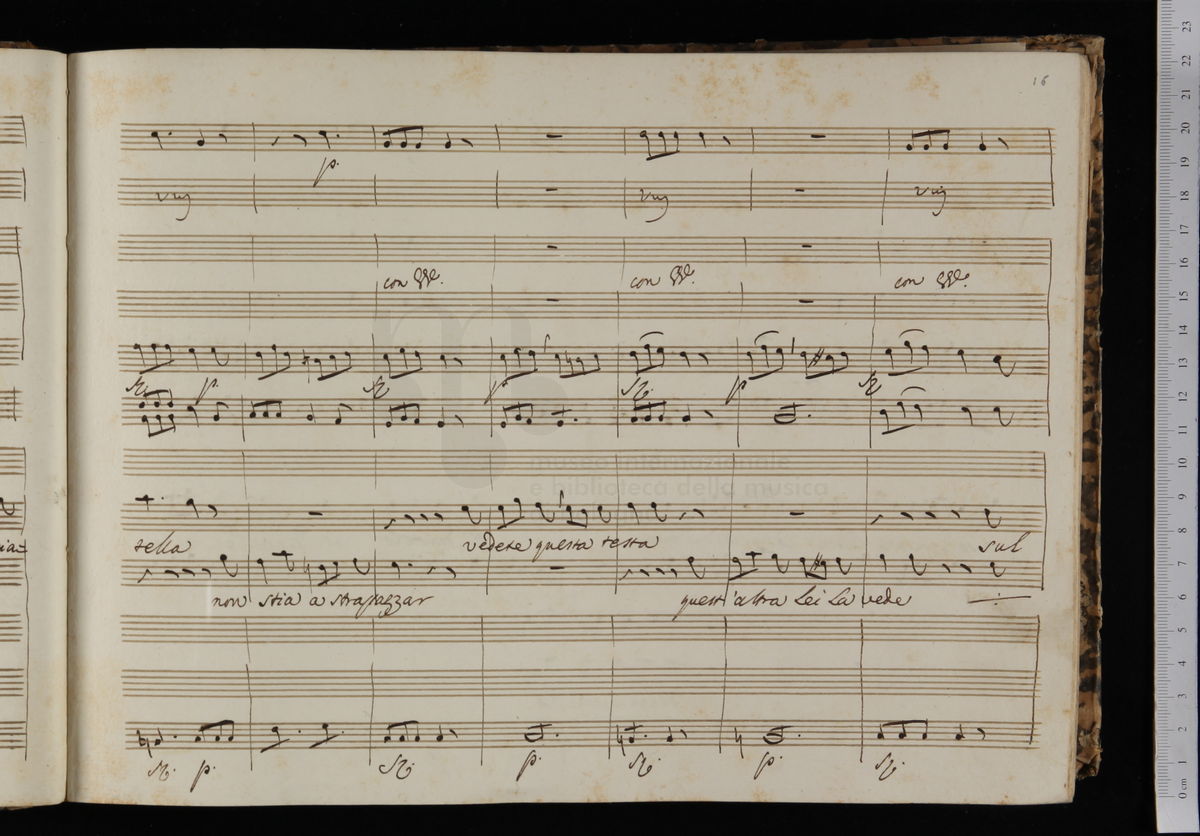 16
p.
con
con
con
p.
p
p
museo internazionale
e biblioteca della musica
sella
vedete questa testa
sul
non stia a strapazzar
quest'altra Lei La vede
p.
p.
p.
23
22
21
20
19
18
17
16
15
14
13
12
11
10
9
8
7
6
5
4
3
2
1
0 cm